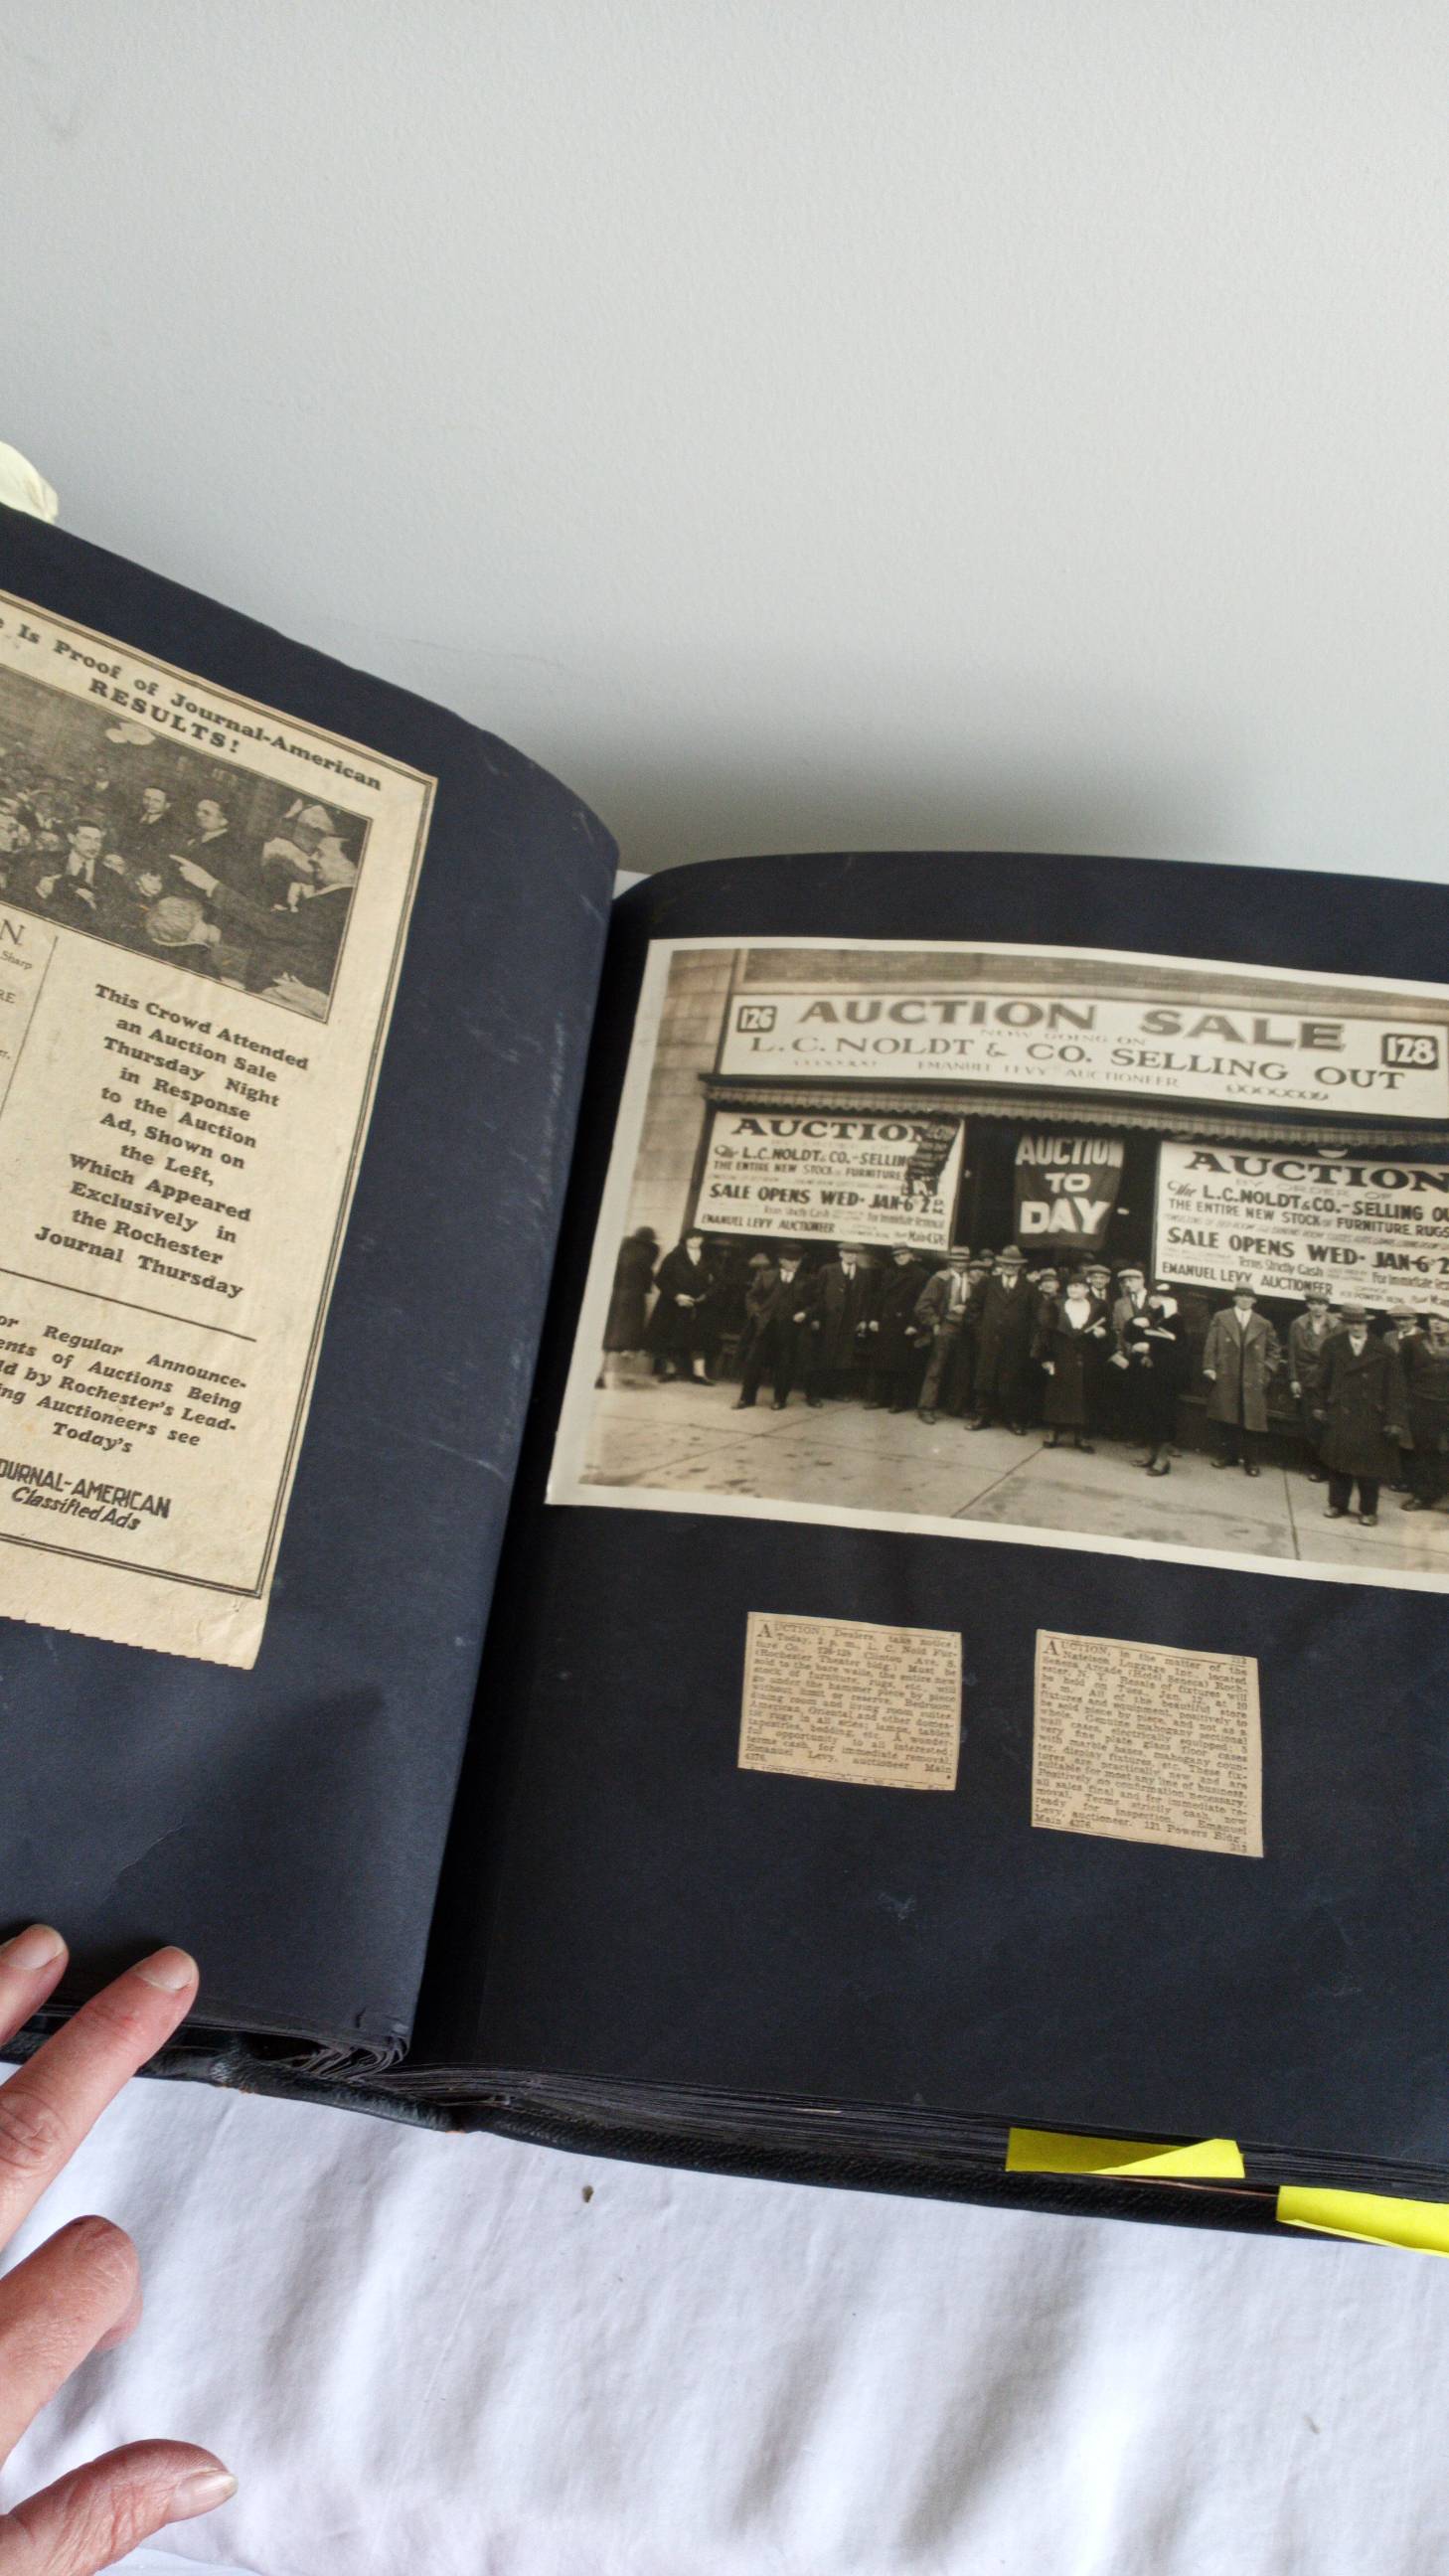 Is Proof of Journal-American
RESULTS!
N
Sharp
RE
This Crowd Attended
an Auction Sale
Thursday Night
in Response
to the Auction
Ad, Shown on
the Left,
Which Appeared
Exclusively in
the Rochester
Journal Thursday
or Regular Announce-
ents of Auctions Being
ld by Rochester's Lead-
ing Auctioneers see
Today's
OURNAL-AMERICAN
Classified Ads
126 AUCTION SALE 128
NOW GOING ON
L.C. NOLDT & CO. SELLING OUT
EMANUEL LEVY AUCTIONEER
AUCTION
The L.C. NOLDT & CO.-SELLING
THE ENTIRE NEW STOCK OF FURNITURE
SALE OPENS WED- JAN-6 2
Terms Strictly Cash For Immediate Removal
EMANUEL LEVY AUCTIONEER
AUCTION
TO
DAY
AUCTION
BY ORDER OF
The L.C. NOLDT & CO.-SELLING OU
THE ENTIRE NEW STOCK OF FURNITURE, RUGS
SALE OPENS WED- JAN-6 2
Terms Strictly Cash For Immediate
EMANUEL LEVY AUCTIONEER
AUCTION, Dealers, take notice!
Today, 2 p. m., L. C. Nold Fur-
ture Co., 126-128 Clinton Ave. S.
(Rochester Theater bldg.) Must be
sold to the bare walls, the entire new
stock of furniture, rugs, etc., will
go under the hammer piece by piece
without limit or reserve. Bedroom,
dining room and living room suites,
American, Oriental and other domes-
tic rugs in all sizes; lamps, tables,
tapestries, bedding, etc. A wonder-
ful opportunity to all interested;
terms cash, for immediate removal.
Emanuel Levy, auctioneer Main
4276.
313
AUCTION, in the matter of the
Natelson Luggage Inc. located
Seneca Arcade (Hotel Seneca) Roch-
ester, N. Y. Resale of fixtures will
be held on Tues., Jan. 12, at 10
a. m. All of the beautiful store
fixtures and equipment, positively to
be sold piece by piece, and not as a
whole. Genuine mahogany sectional
wall cases, electrically equipped; 3
very fine plate glass floor cases
with marble bases, mahogany coun-
ter, display fixtures, etc. These fix-
tures are practically new and are
suitable for most any line of business.
Positively no confirmation necessary,
all sales final and for immediate re-
moval. Terms strictly cash, now
ready for inspection. Emanuel
Levy, auctioneer, 121 Powers Bldg.
Main 4276.
313